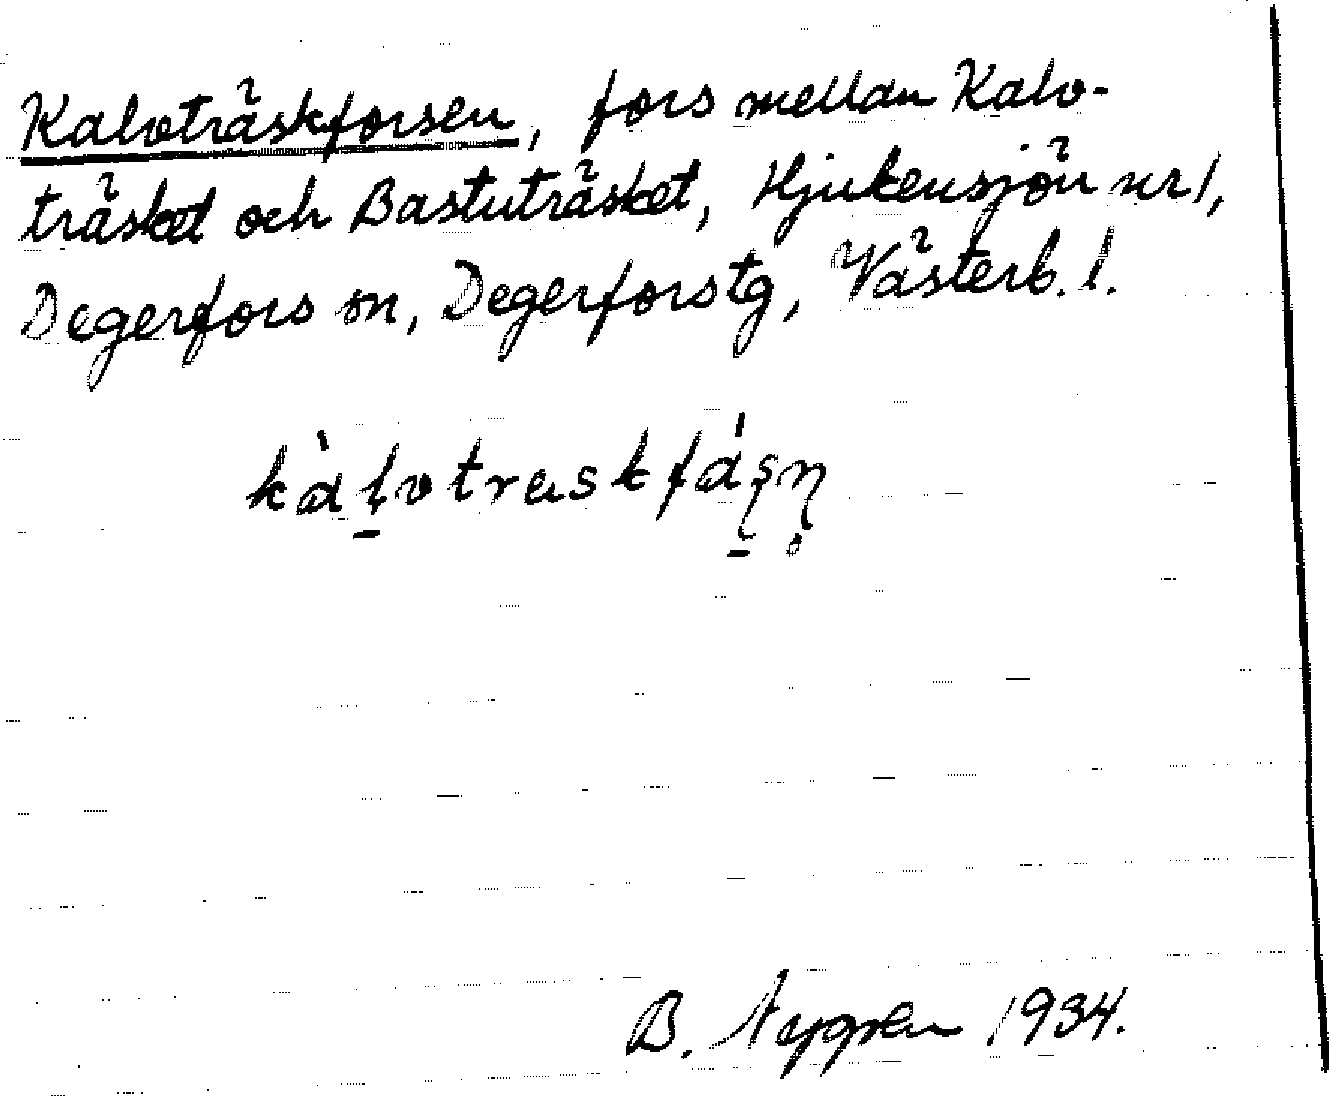 Kalvträskforsen, fors mellan Kalv-
träsket och Bastuträsket, Hjukensjön nr 1,
Degerfors sn, Degerfors tg, Västerb. l.
kàḷvtraskfáṣṇ̥
B. Nygren 1934.